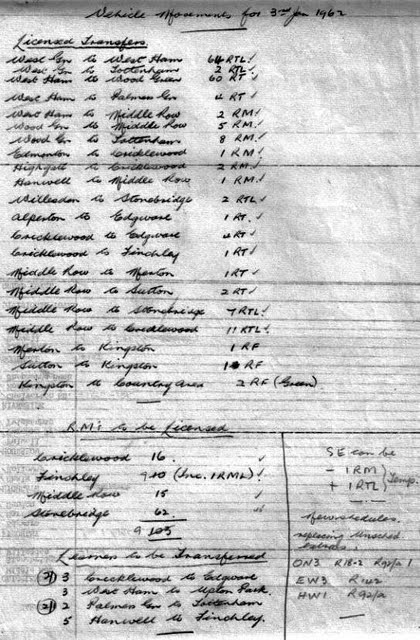 Vehicle Movements for 3rd Jan 1962
Licensed Transfers
West Gn to West Ham 64 RTL
West Gn to Tottenham 2 RTL
West Ham to Wood Green 60 RT
West Ham to Palmers Gn 4 RT
West Ham to Middle Row 2 RM
Wood Gn to Middle Row 5 RM
Wood Gn to Tottenham 8 RM
Edmonton to Cricklewood 1 RM
Highgate to Cricklewood 2 RM
Hanwell to Middle Row 1 RM
Willesden to Stonebridge 2 RTL
Alperton to Edgware 1 RT
Cricklewood to Edgware 4 RT
Cricklewood to Finchley 1 RT
Middle Row to Merton 1 RT
Middle Row to Sutton 2 RT
Middle Row to Stonebridge 7 RTL
Middle Row to Cricklewood 11 RTL
Merton to Kingston 1 RF
Sutton to Kingston 1 RF
Kingston to Country Area 2 RF (Green)
R.M's to be Licensed
Cricklewood 16
Finchley 10 (Inc. 1 RML)
Middle Row 15
Stonebridge 62
Learner to be Transferred
3 Cricklewood to Edgware
3 West Ham to Upton Park
2 Palmers Gn to Tottenham
5 Hanwell to Finchley
SE can be
- 1 RM
+ 1 RTL
Temp.
New schedules
replacing Unsched
extras
ON3 R18-2 R92/2 1
EW3 R142
HW1 R92/2